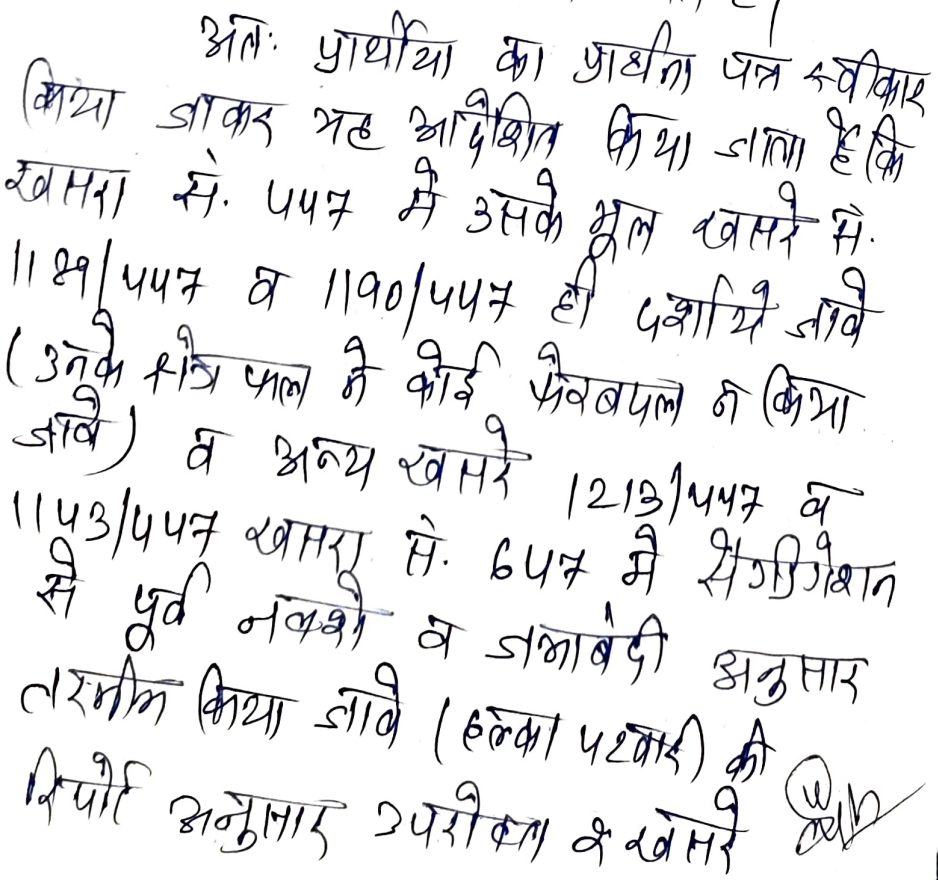 अतः प्रार्थीया का प्रार्थना पत्र स्वीकार
किया जाकर यह आदेशित किया जाता है कि
खसरा सं. 447 में उसके मूल खसरे सं.
1189/447 व 1190/447 ही दर्शाये जावे
(उनके क्षेत्रफल में कोई फेरबदल न किया
जावे) व अन्य खसरे 1213/447 व
1143/447 खसरा सं. 647 में सेग्रीगेशन
से पूर्व नक्शे व जमाबंदी अनुसार
तरमीम किया जावे (हल्का पटवारी) की
रिपोर्ट अनुसार उपरोक्त खसरे